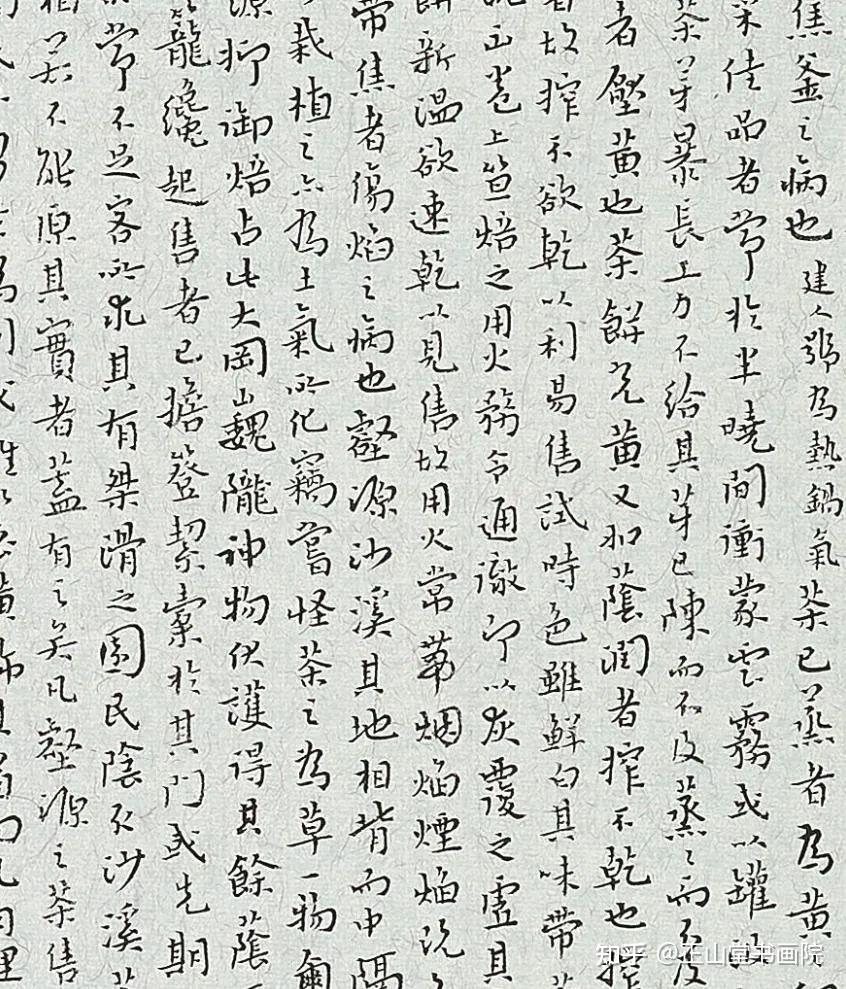 焦釜之病也建人號為熱鍋氣茶已蒸者為黃
采佳品者常於半曉間衝蒙雲霧或以罐
茶芽暴長工力不給其芽已陳而不及蒸蒸而不及
者壓黃也茶餅光黃又如蔭潤者榨不乾也榨
者故榨不欲乾以利易售試時色雖鮮白其味帶
出卷上笪焙之用火務令通徹即以灰覆之虛其
餅新溫欲速乾以見售故用火常帶烟焰煙焰既
帶焦者傷焰之病也壑源沙溪其地相背而中隔
栽植之亦為土氣所化竊嘗怪茶之為草一物爾
源抑御焙占此大岡巍隴神物伏護得其餘蔭
籠纔起售者已擔簦挈橐於其門或先期
常不足客所求其有桀滑之園民陰取沙溪
相若不能原其實者蓋有之矣凡壑源之茶售
知乎 @正山堂书画院